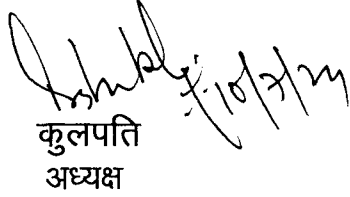 10/7/24
कुलपति
अध्यक्ष